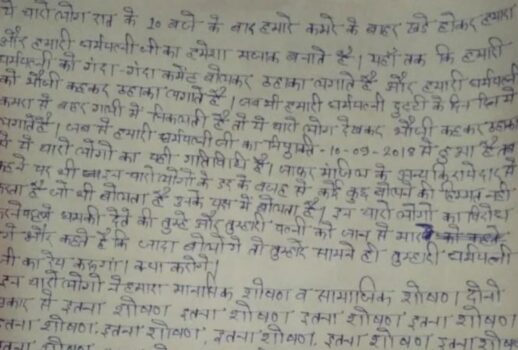 ये चारो लोग रात के 10 बजे के बाद हमारे कमरे के बाहर खड़े होकर हमारा
और हमारी धर्मपत्नी जी का हमेशा मजाक बनाते है। यहाँ तक कि हमारी
धर्मपत्नी को गंदा-गंदा कमेंट बोलकर ठहाका लगाते है और हमारी धर्मपत्नी
को भौजी कहकर ठहाका लगाते है। जब भी हमारी धर्मपत्नी ड्युटी के दिन दिन में
कमरा में बाहर गली में निकलती है तो ये चारो लोग देखकर भौजी कहकर ठहाका
लगाते है। जब में हमारी धर्मपत्नी जी का नियुक्ति-10-09-2018 में हुआ है तब
से में चारो लोगों का यही गतिविधी है। ऊपर मंजिल के अन्य किरायेदार में
कहने पर भी चारो लोगो के डर के वजह में कोई कुछ बोलने की हिम्मत नही
करता है जो भी बोलता है उनके पक्ष में बोलता है। इन चारो लोगो का विरोध
करने पर धमकी देते की तुम्हे और तुम्हारी पत्नी को जान में मार
गे और कहते है कि जादा बोलोगे तो तुम्हारे सामने ही तुम्हारी धर्मपत्नी
जी का रेप करूंगा। क्या करोगे।
इन चारो लोगो ने हमारा मानसिक शोषण व सामाजिक शोषण। दोनो
प्रकार में इतना शोषण इतना शोषण इतना शोषण इतना शोषण
इतना शोषण, इतना शोषण, इतना शोषण, इतना शोषण
इतना शोषण इतना शोषण